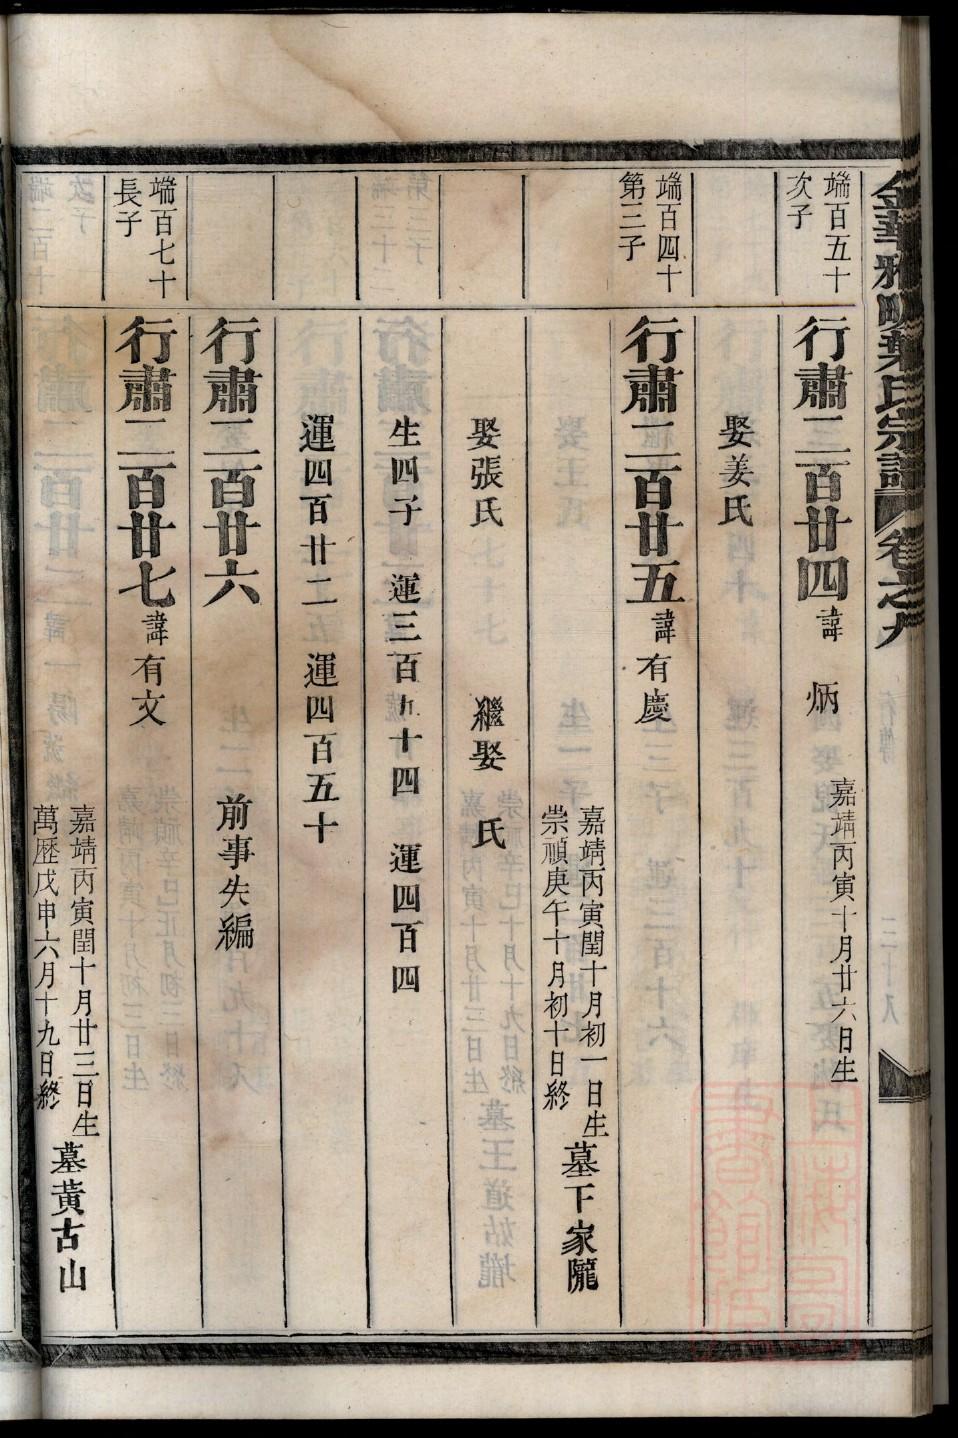 金華雅畈葉氏宗譜 卷之九
端百五十
次子
行肅三百廿四 諱 炳
嘉靖丙寅十月廿六日生
娶姜氏
端百四十
第三子
行肅三百廿五 諱有慶
嘉靖丙寅閏十月初一日生
崇禎庚午十月初十日終
墓下家隴
娶張氏 繼娶 氏
生四子 運三百九十四 運四百四
運四百廿二 運四百五十
行肅三百廿六
前事失編
端百七十
長子
行肅三百廿七 諱有文
嘉靖丙寅閏十月廿三日生
萬歷戊申六月十九日終
墓黃古山